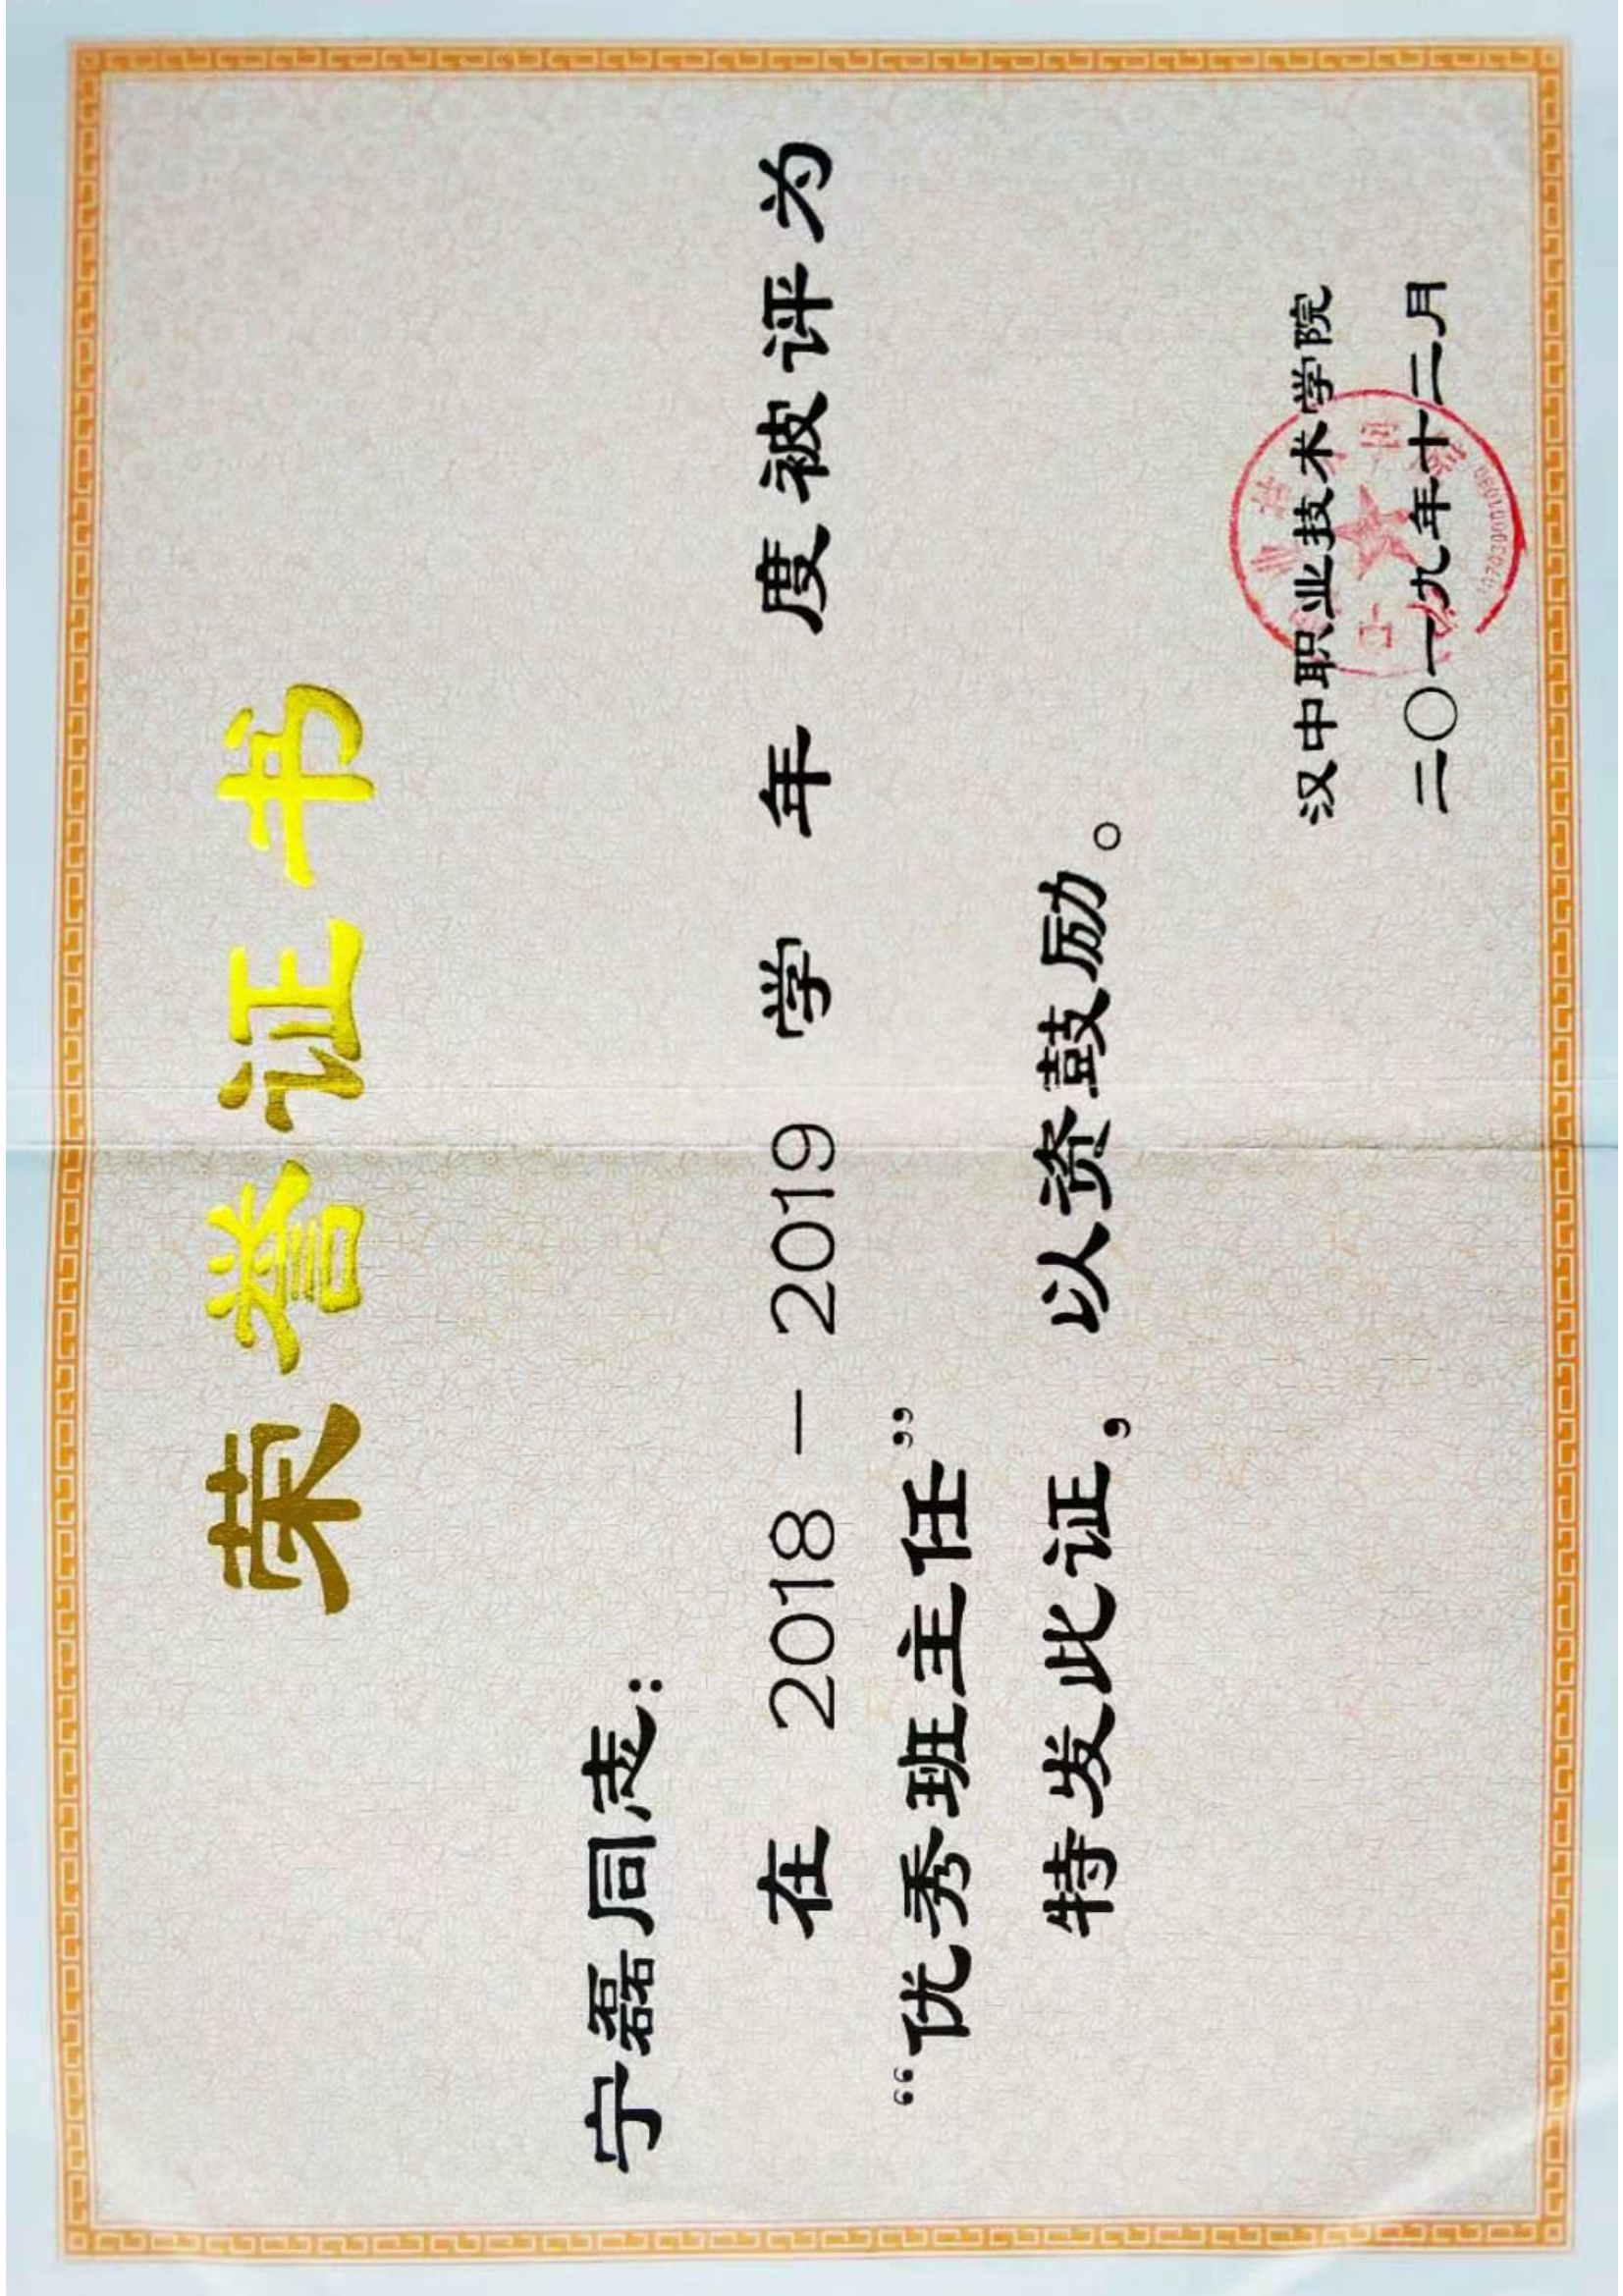 荣誉证书
宁磊同志：
在 2018－2019 学 年 度被评为
“优秀班主任”
特发此证，以资鼓励。
汉中职业技术学院
二〇一九年十二月